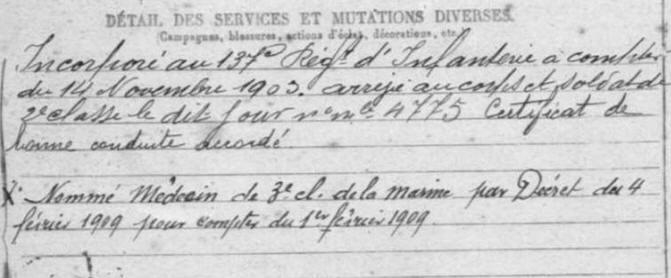 DÉTAIL DES SERVICES ET MUTATIONS DIVERSES.
(Campagnes, blessures, actions d'éclat, décorations, etc.)
Incorporé au 137e Régt d'Infanterie à compter
du 14 Novembre 1903. arrivé au corps et soldat de
2e classe le dit jour no mle 4775 Certificat de
bonne conduite accordé
X Nommé Médecin de 3e cl. de la marine par Décret du 4
février 1909 pour compter du 1er février 1909.